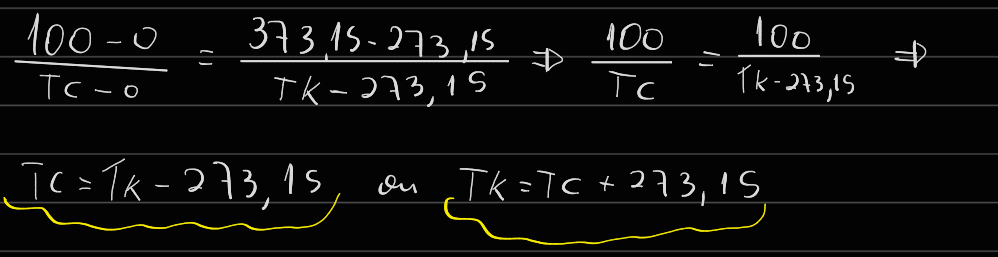 100 - 0 / Tc - 0 = 373,15 - 273,15 / TK - 273,15 ⇒ 100 / Tc = 100 / TK - 273,15 ⇒
Tc = TK - 273,15 ou TK = Tc + 273,15